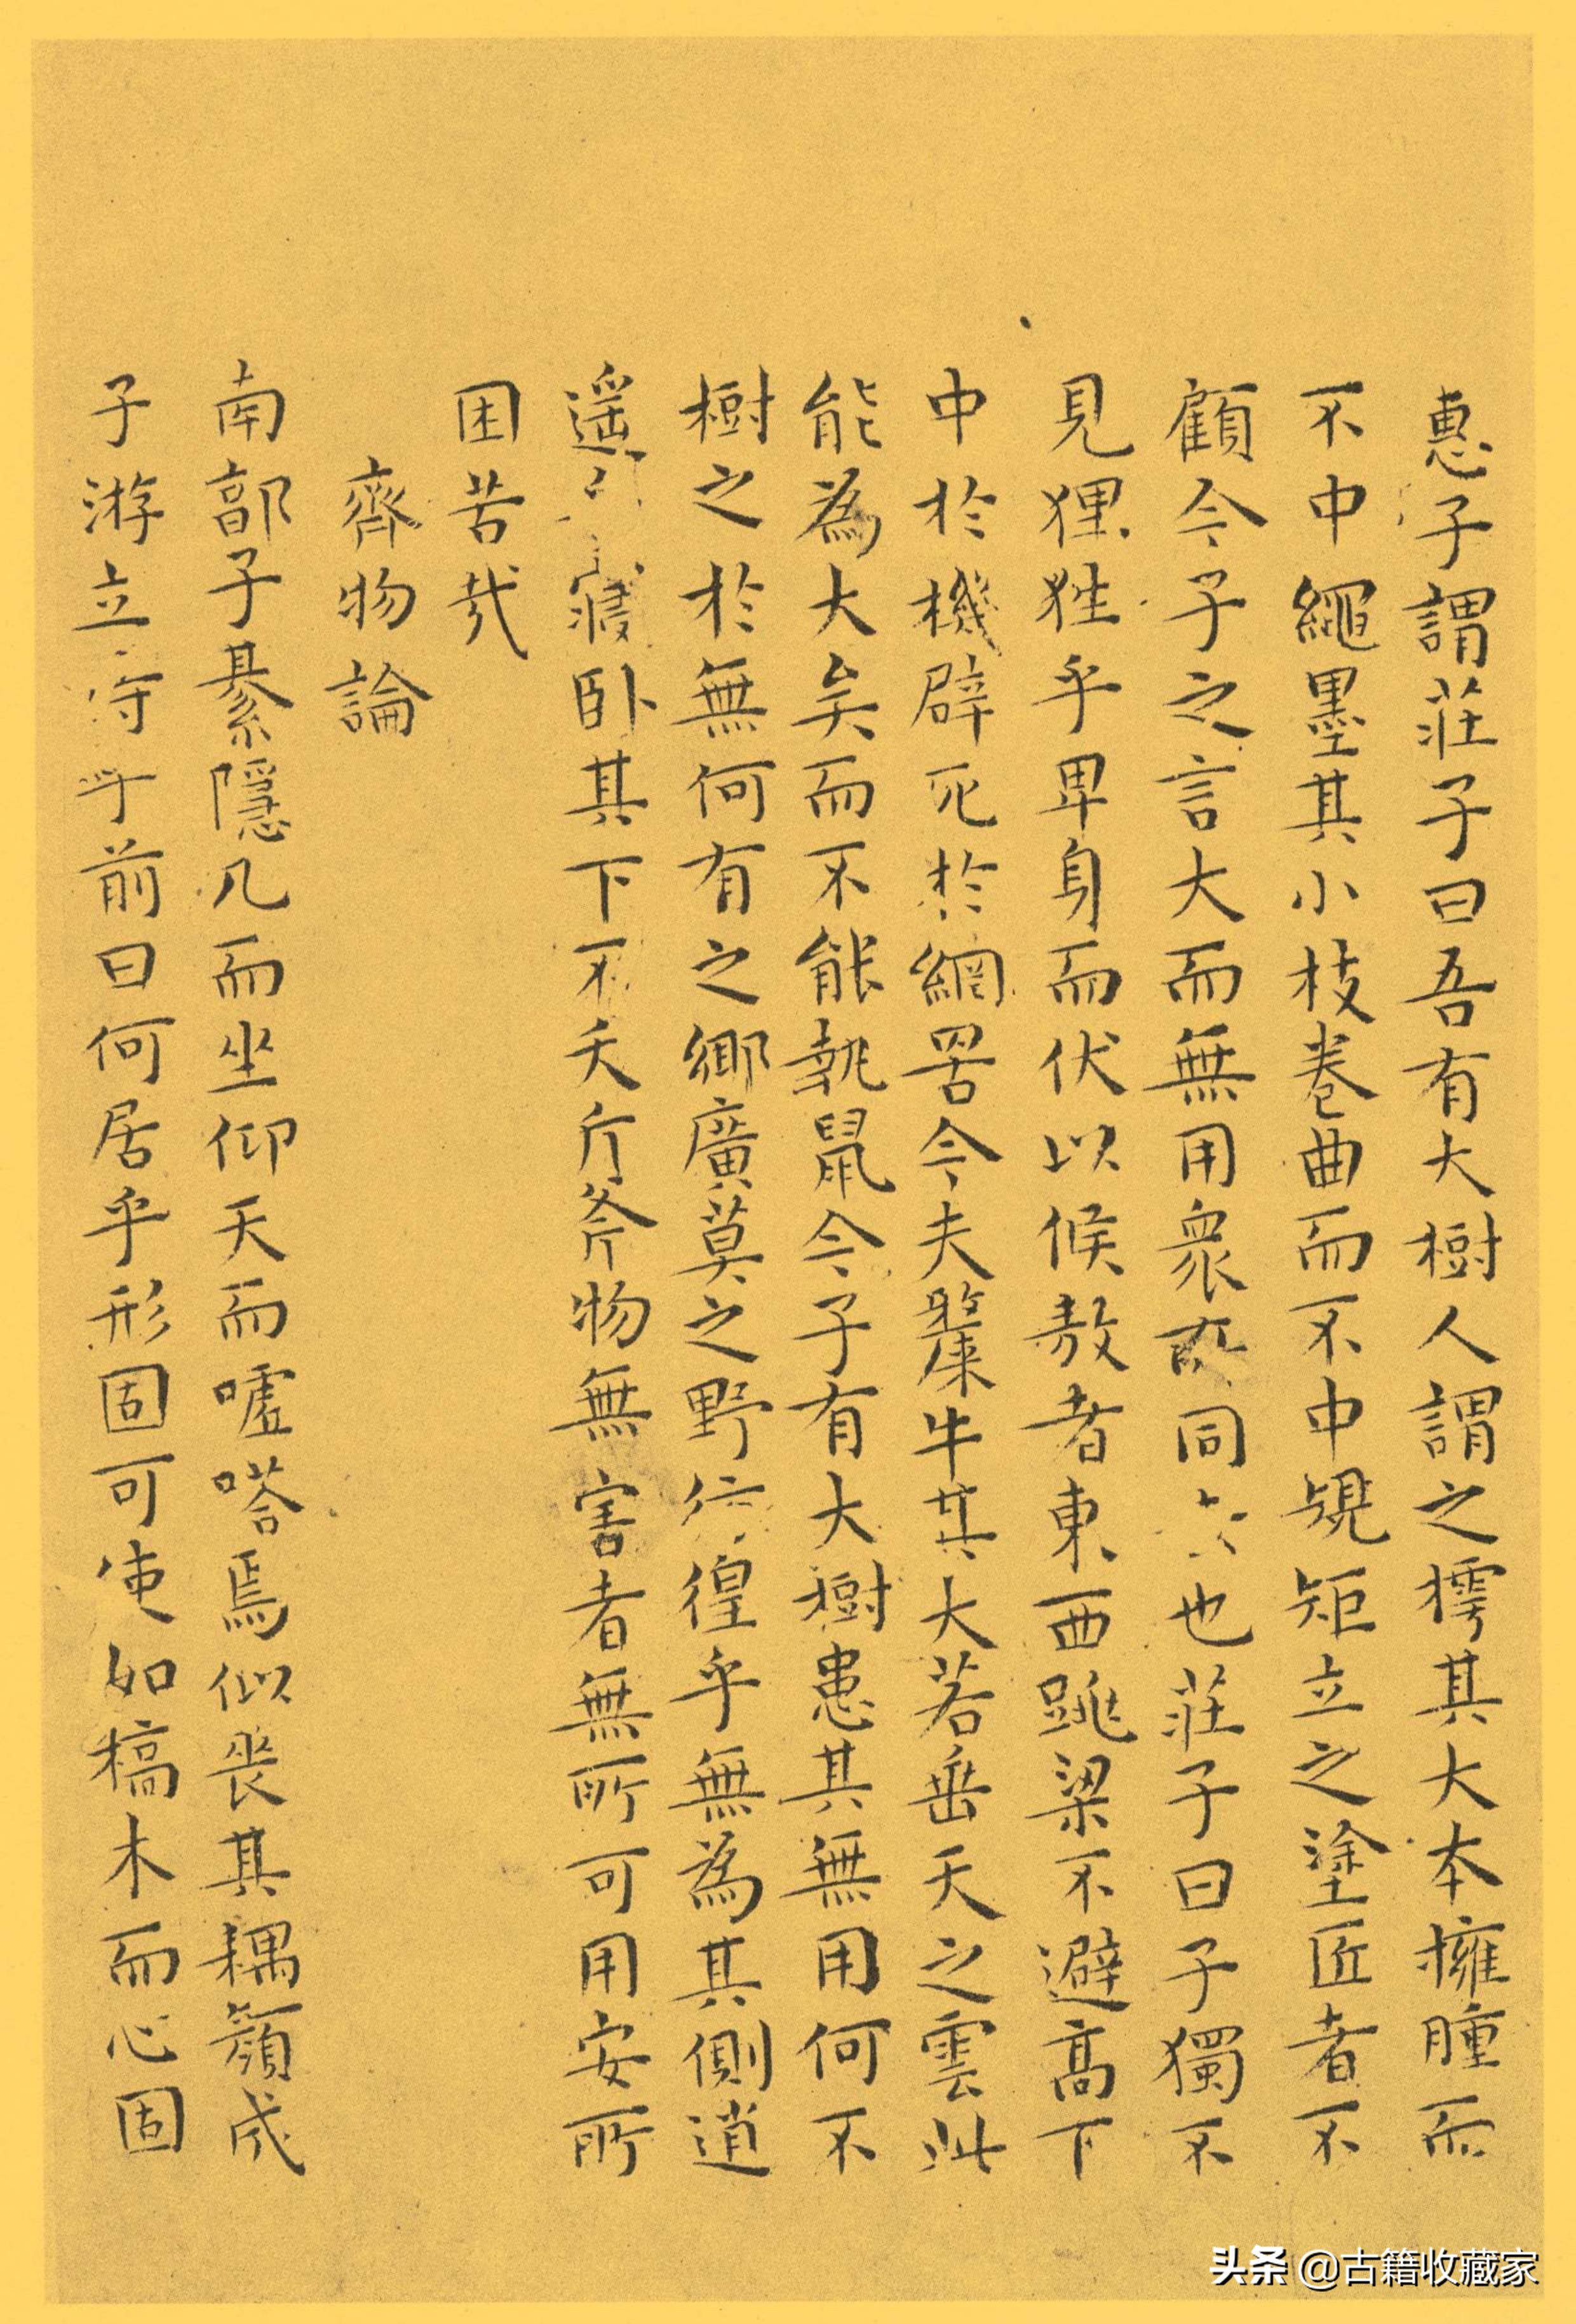 惠子謂莊子曰吾有大樹人謂之樗其大本擁腫而
不中繩墨其小枝卷曲而不中規矩立之塗匠者不
顧今子之言大而無用衆所同也莊子曰子獨不
見狸狌乎卑身而伏以候敖者東西跳梁不避高下
中於機辟死於網罟今夫斄牛其大若垂天之雲此
能為大矣而不能執鼠今子有大樹患其無用何不
樹之於無何有之鄉廣莫之野徨乎無為其側逍
遥寢臥其下不夭斤斧物無害者無所可用安所
困苦哉
齊物論
南郭子綦隱几而坐仰天而嘘嗒焉似喪其耦顏成
子游立侍乎前曰何居乎形固可使如槁木而心固
头条 @古籍收藏家